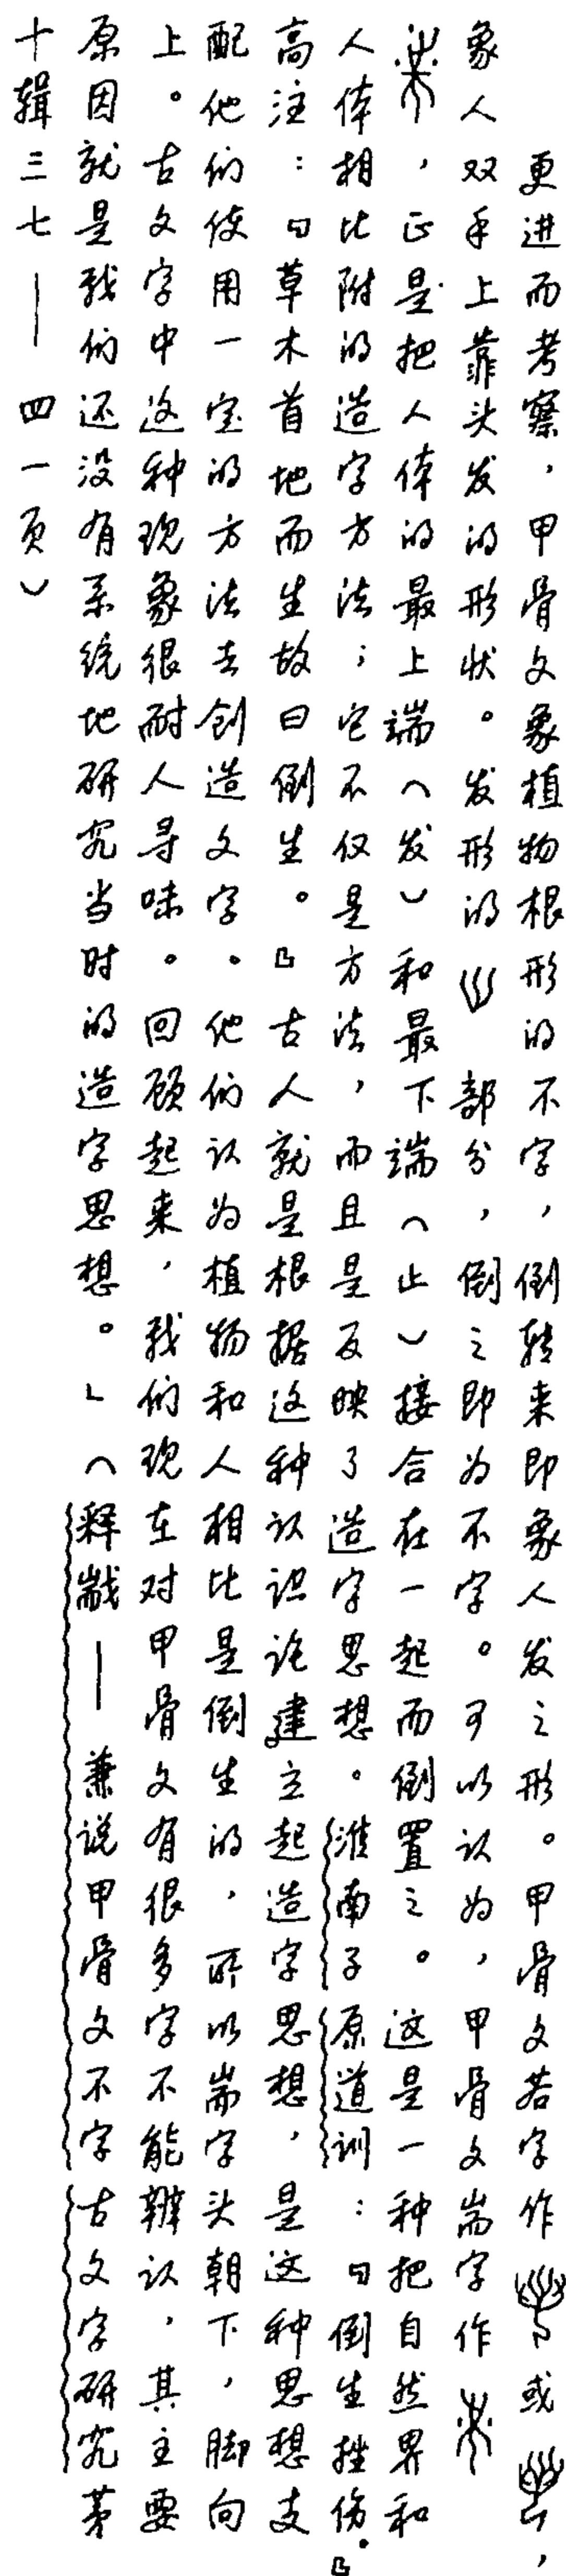 更进而考察，甲骨文象植物根形的不字，倒转来即象人发之形。甲骨文若字作或，
象人双手上靠头发的形状。发形的部分，倒之即为不字。可以认为，甲骨文耑字作
，正是把人体的最上端（发）和最下端（止）接合在一起而倒置之。这是一种把自然界和
人体相比附的造字方法；它不仅是方法，而且是反映了造字思想。淮南子原道训：『倒生挫伤。』
高注：『草木首地而生故曰倒生。』古人就是根据这种认识论建立起造字思想，是这种思想支
配他们使用一定的方法去创造文字。他们认为植物和人相比是倒生的，所以耑字头朝下，脚向
上。古文字中这种现象很耐人寻味。回顾起来，我们现在对甲骨文有很多字不能辨认，其主要
原因就是我们还没有系统地研究当时的造字思想。」（释𣦼——兼说甲骨文不字古文字研究第
十辑三七——四一页）